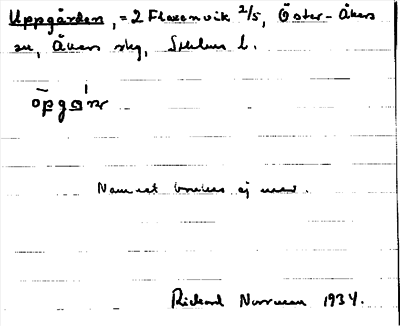 Uppgården, = 2 Flaxenvik 2/5, Öster-Åkers
sn, Åkers skg, Sthlms l.
Namnet brukas ej mer.
Rickard Norrman 1934.